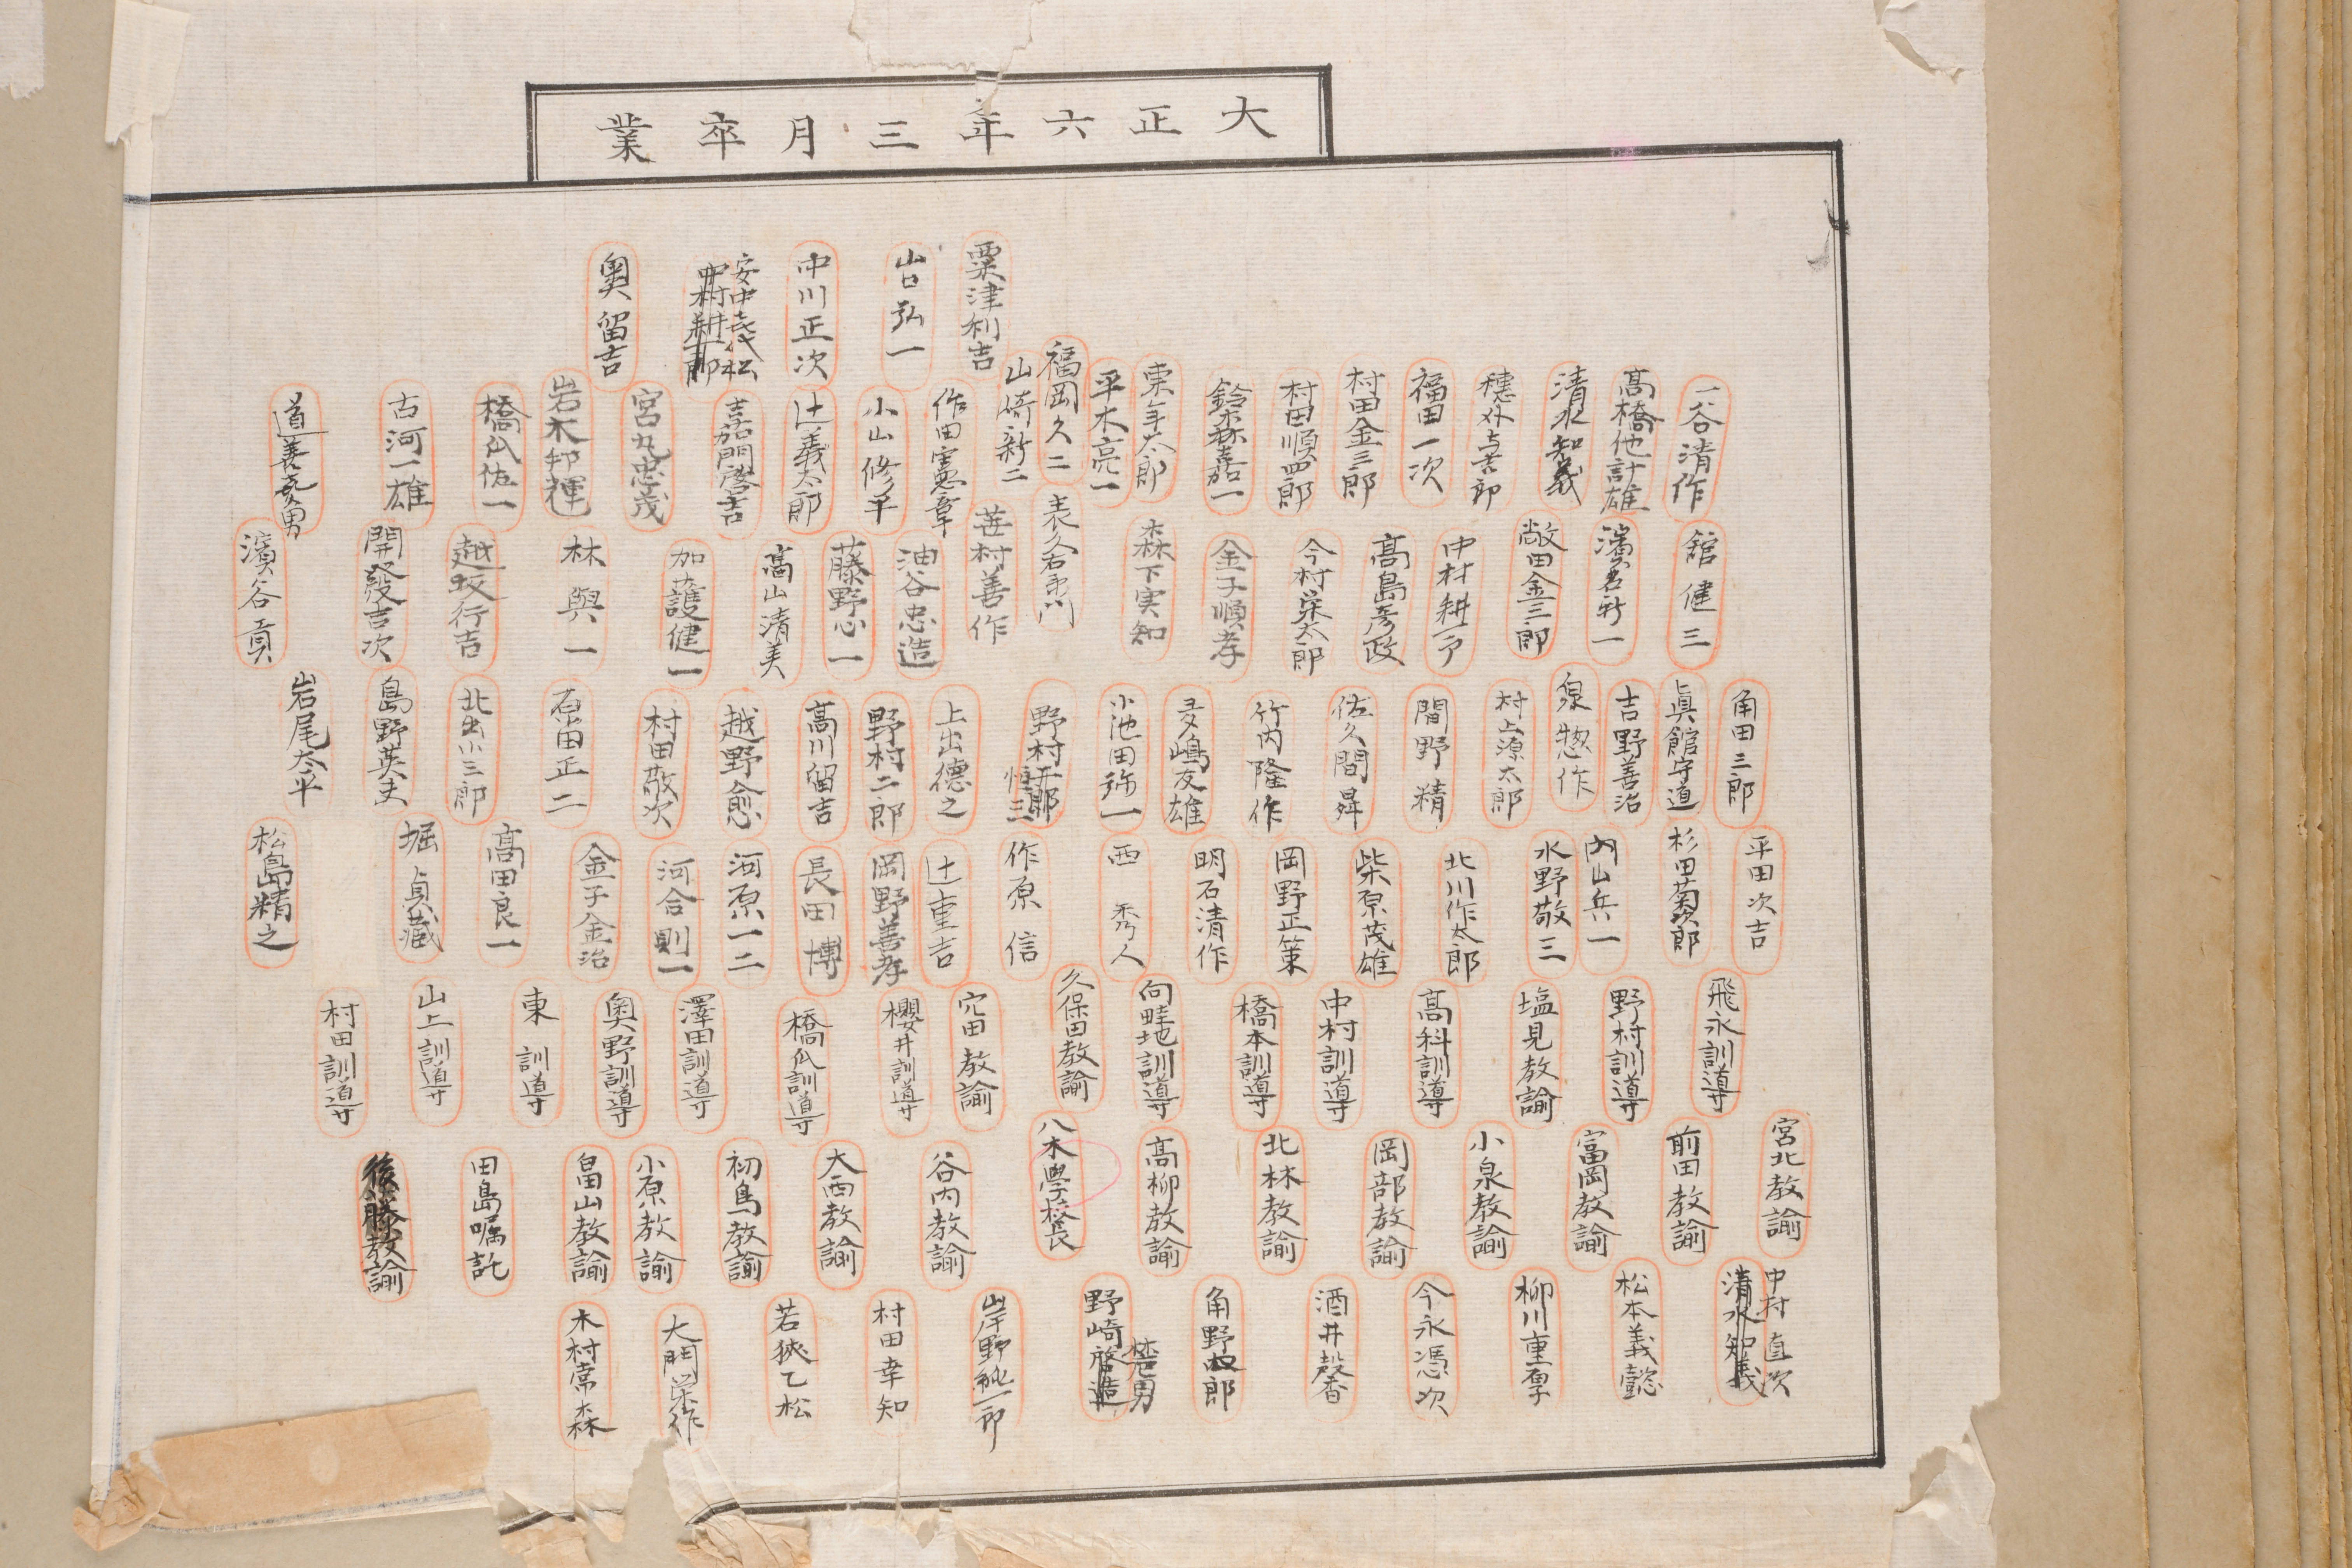 大正六年三月卒業
粟津利吉
山口弘一
中川正次
安中喜代松
中村耕一郎
奥留吉
一谷清作
高橋他計雄
清水知義
穗外与吉郎
福田一次
村田金三郎
村田順四郎
鈴森嘉一
東年太郎
平木亮一
福岡久二
山崎新二
作田憲章
小山修平
辻義太郎
吉嘉門啓吉
宮丸忠茂
岩木知輝
橋爪佐一
古河一雄
道善克男
館健三
濱名新一
敞田金三郎
中村耕一郎
髙島彦政
今村栄太郎
金子順孝
森下実知
表久右衛門
苗村善作
油谷忠造
藤野心一
髙山清美
加護健一
林與一
越坂行吉
開發吉次
濱谷貢
角田三郎
眞館守道
吉野善治
泉惣作
村上源太郎
間野精
佐久間舜
竹内隆作
嶋友雄
小池田弥一
野村五郎
恒三
上出德之
野村二郎
髙川留吉
越野愈
村田敬次
石當正二
北出小三郎
島野英夫
岩尾太平
平田次吉
杉田菊次郎
内山兵一
水野敬三
北川作太郎
柴原茂雄
岡野正策
明石清作
西秀人
作原信
辻重吉
岡野善孝
長田博
河原一二
河合則一
金子金治
髙田良一
堀貞藏
松島精之
飛永訓導
野村訓導
塩見教諭
髙科訓導
中村訓導
橋本訓導
向畦地訓導
久保田教諭
穴田教諭
櫻井訓導
橋爪訓導
澤田訓導
奥野訓導
東訓導
山上訓導
村田訓導
宮北教諭
前田教諭
富岡教諭
小泉教諭
岡部教諭
北林教諭
髙柳教諭
八木學校長
谷内教諭
大西教諭
初鳥教諭
小原教諭
畠山教諭
田島嘱託
後藤教諭
中村直次
清水知義
松本義懿
柳川重厚
今永憑次
酒井馨香
角野四郎
野崎啓造
梵男
岸野純一郎
村田幸知
若狹乙松
大門栄作
木村常森